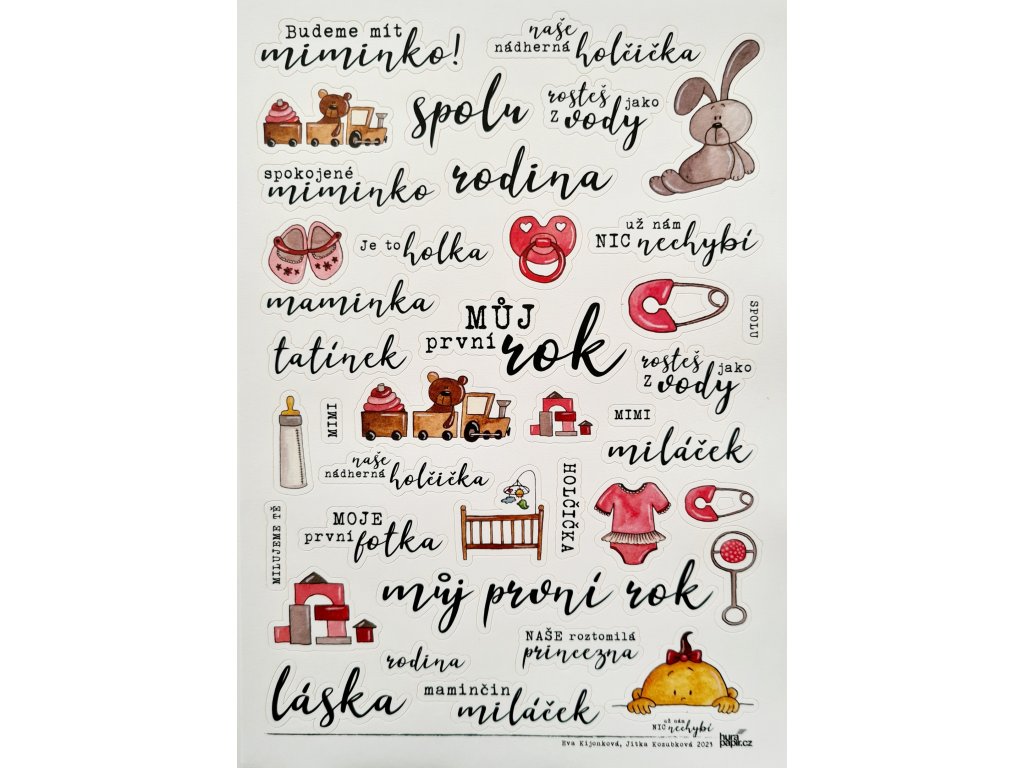 Budeme mít
miminko!
naše
nádherná holčička
spolu
rosteš jako
z vody
spokojené
miminko
rodina
Je to holka
už nám
NIC nechybí
maminka
MŮJ
první rok
SPOLU
tatínek
rosteš jako
z vody
MIMI
MIMI
miláček
naše
nádherná holčička
HOLČIČKA
MILUJEME TĚ
MOJE
první fotka
můj první rok
NAŠE roztomilá
princezna
rodina
láska
maminčin
miláček
už nám
NIC nechybí
Eva Kijonková, Jitka Kozubková 2023
hurá
papír.cz